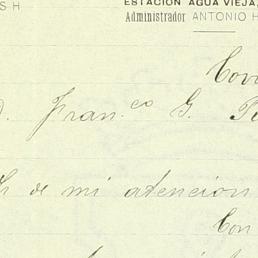 S H
ESTACIÓN AGUA VIEJA,
Administrador ANTONIO H
Fran.co G.
de mi atención
Con